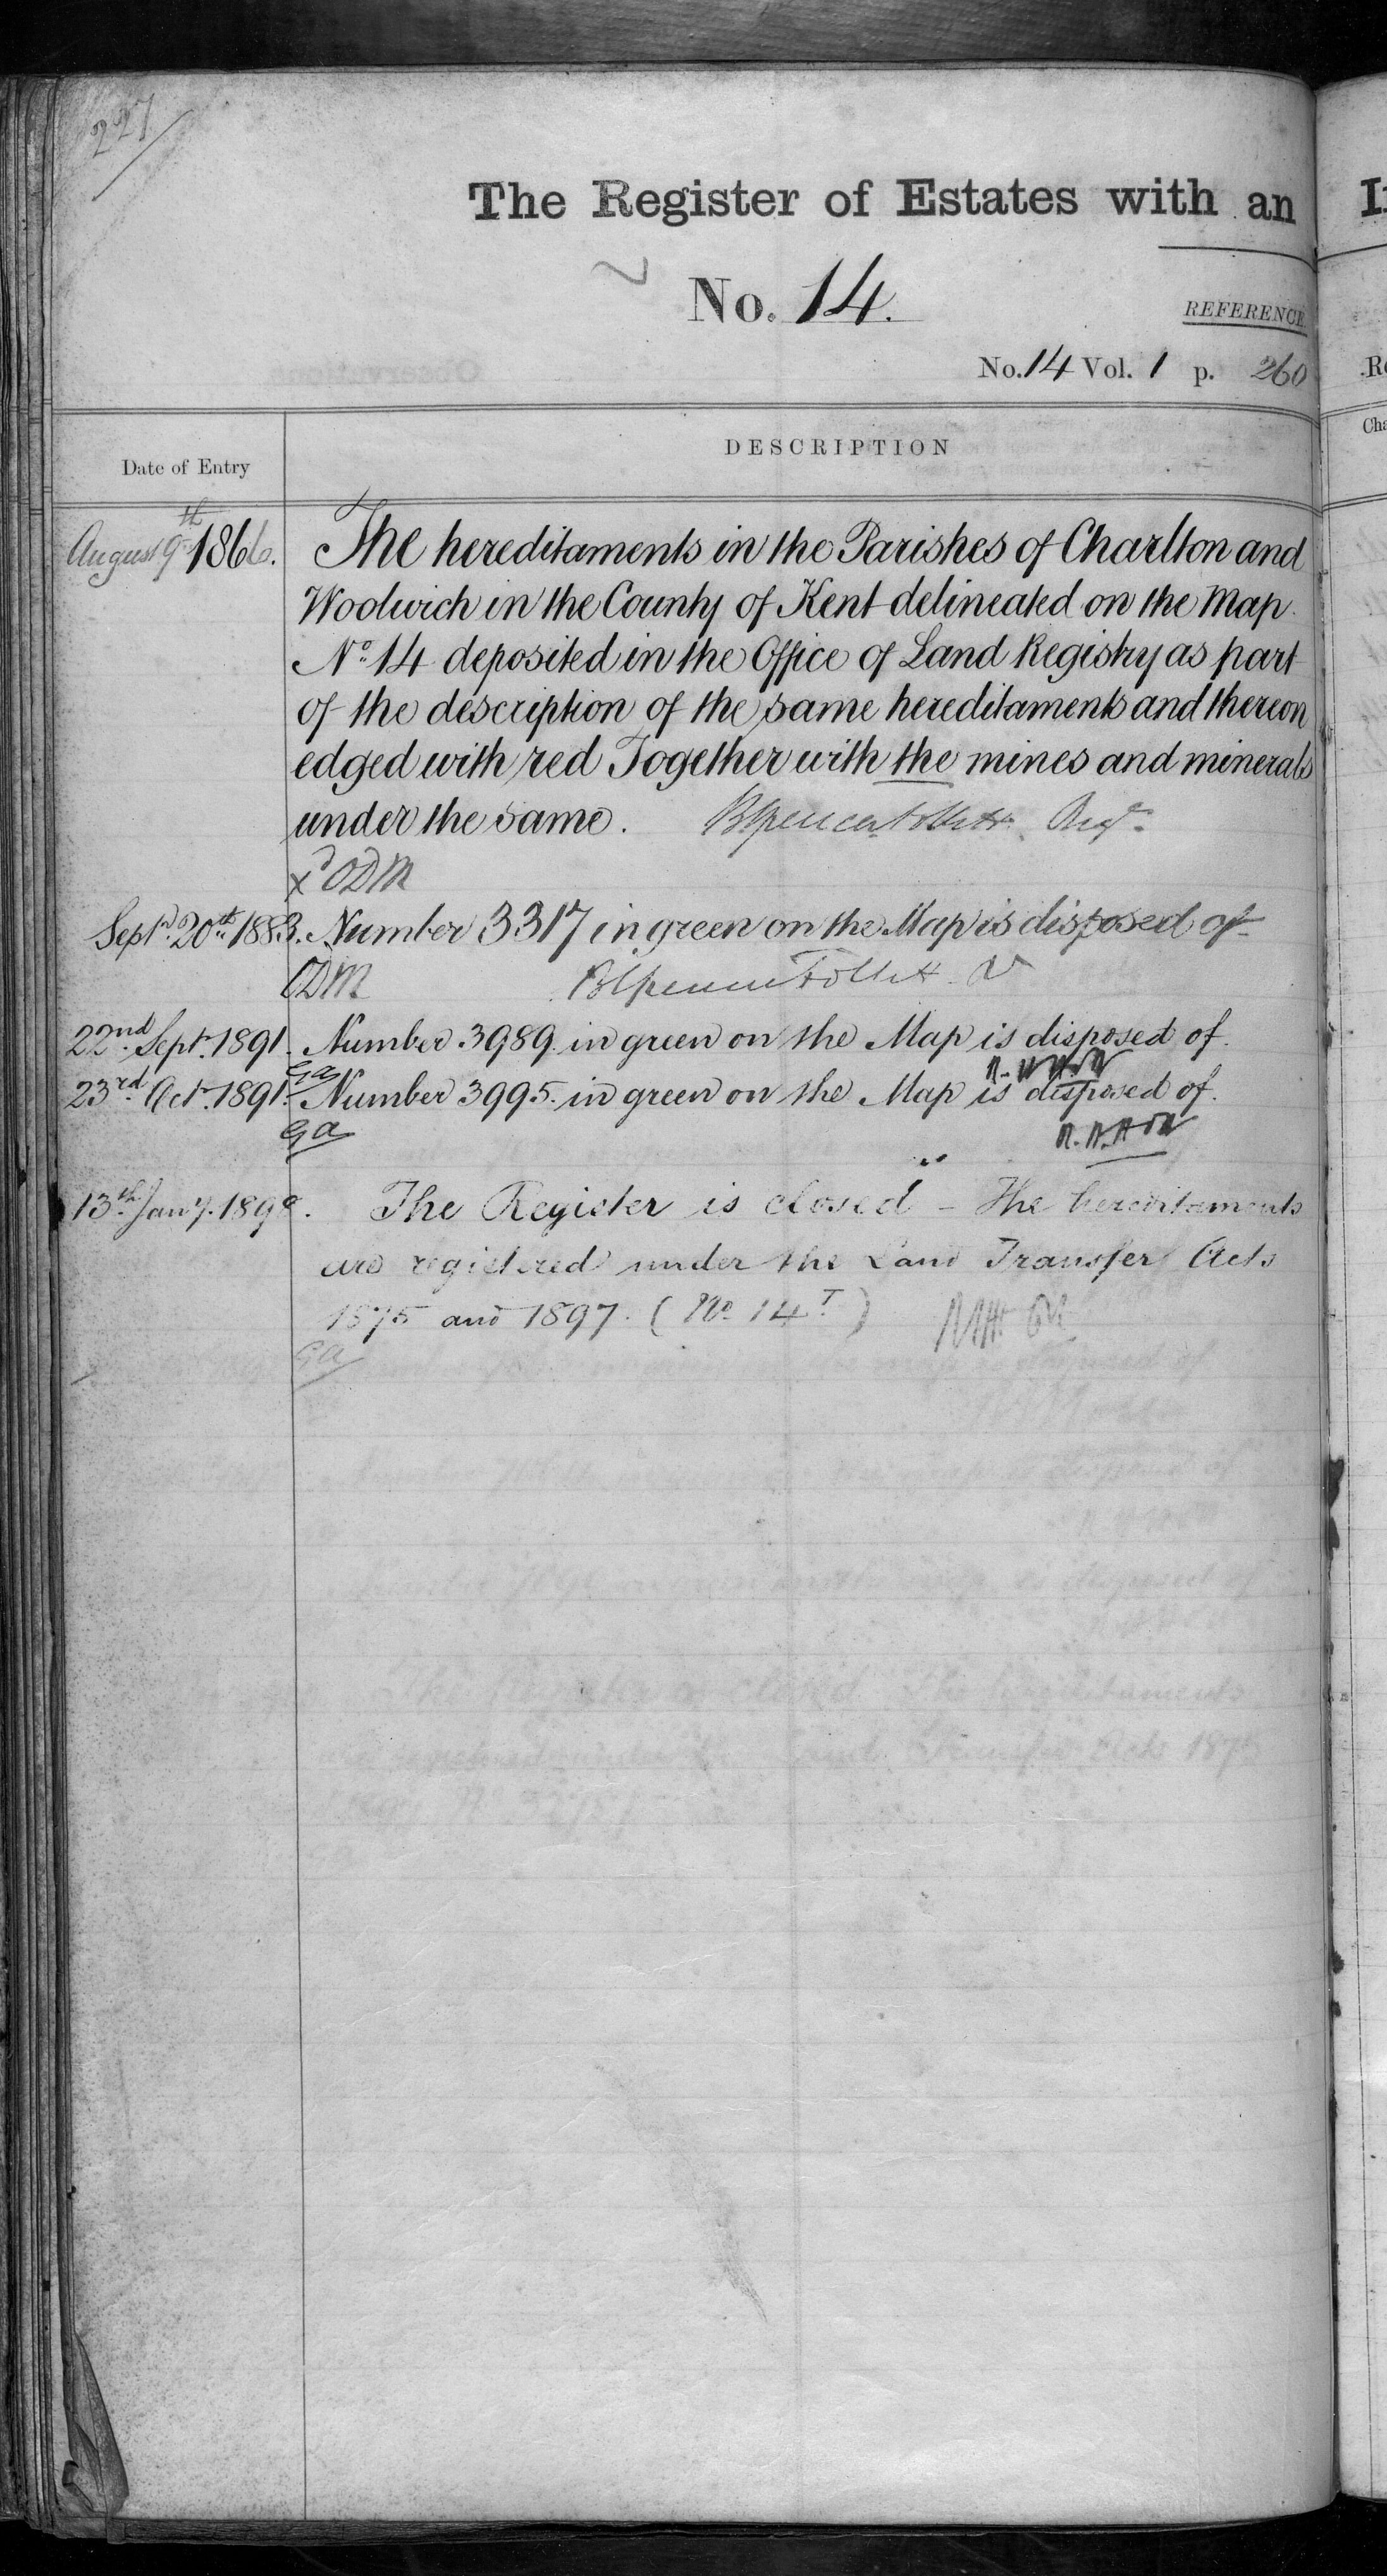 227
The Register of Estates with an
No. 14.
REFERENCE
No. 14 Vol. 1 p. 260
Date of Entry
DESCRIPTION
August 9th 1866. The hereditaments in the Parishes of Charlton and
Woolwich in the County of Kent delineated on the Map
No. 14 deposited in the Office of Land Registry as part
of the description of the same hereditaments and thereon
edged with red Together with the mines and minerals
under the same.
xd ODM
Septr. 20th 1883. Number 3317 in green on the Map is disposed of
ODM
22nd Septr. 1891. Number 3989 in green on the Map is disposed of.
GA
23rd Octr. 1891. Number 3995 in green on the Map is disposed of.
GA
13th Jany. 189 . The Register is closed - The hereditaments
are registered under the Land Transfer Acts
1875 and 1897. (No. 14T)
GA